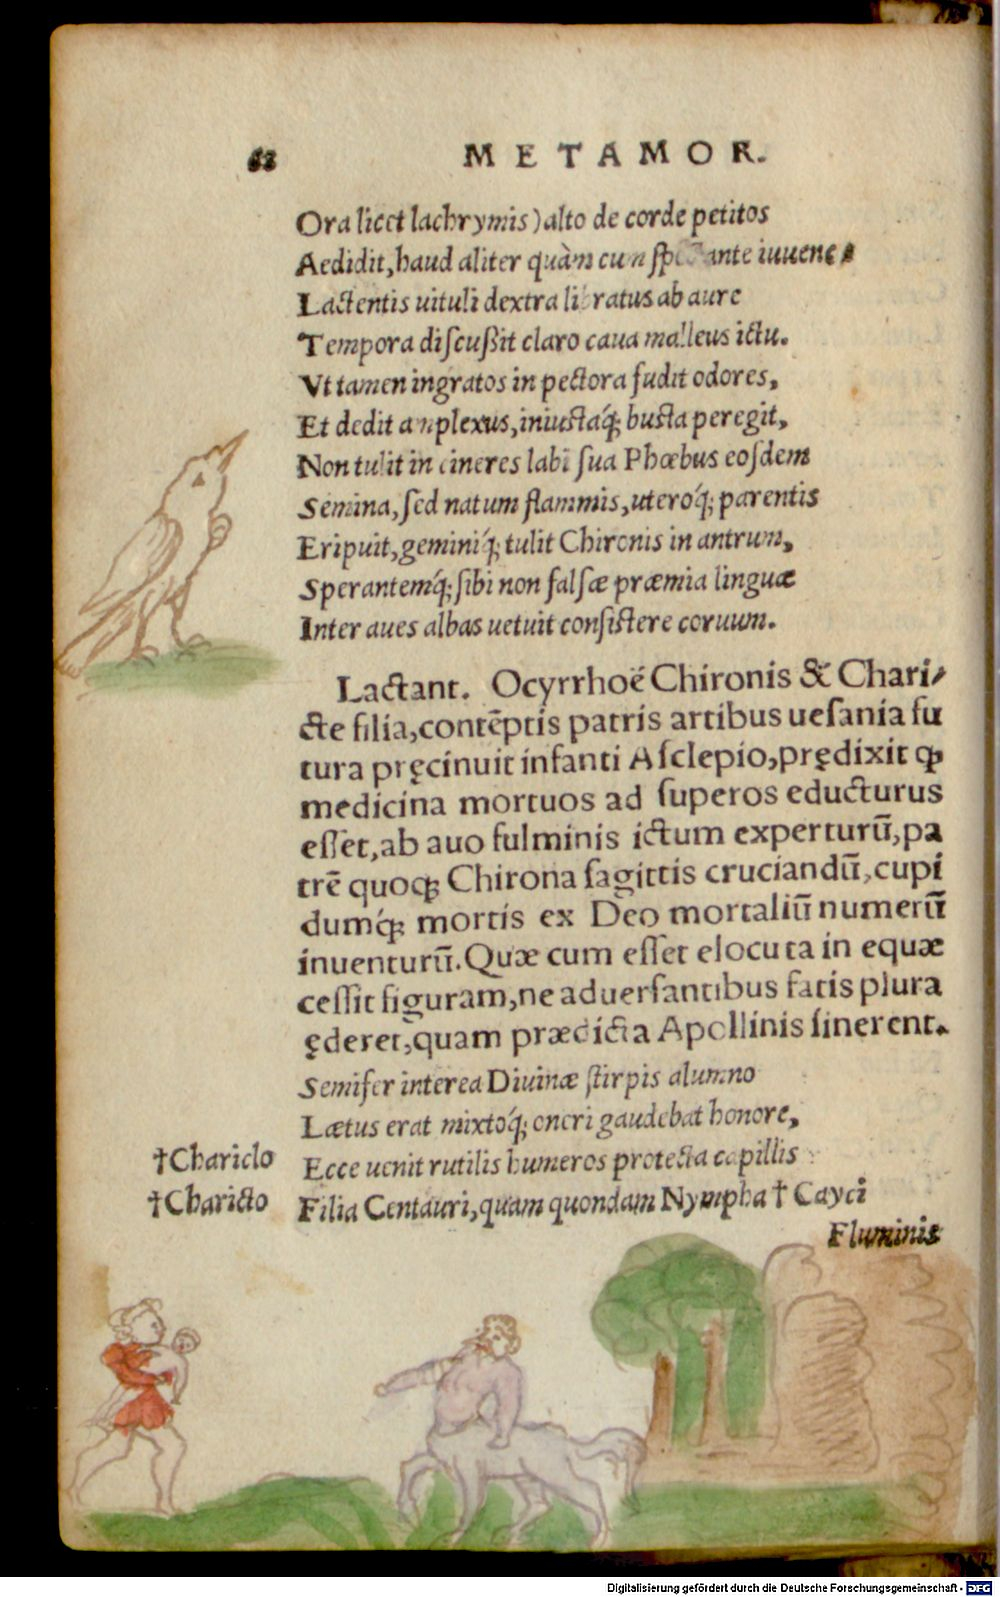 62
METAMOR.
Ora licet lachrymis) alto de corde petitos
Aedidit, haud aliter quàm cum iuuenca
Lactentis uituli dextra libratus ab aure
Tempora discußit claro caua malleus ictu.
Vt tamen ingratos in pectora fudit odores,
Et dedit amplexus, iniustaq́; busta peregit,
Non tulit in cineres labi sua Phœbus eosdem
Semina, sed natum flammis, uteroq́; parentis
Eripuit, geminiq́; tulit Chironis in antrum,
Sperantemq́; sibi non falsæ præmia linguæ
Inter aues albas uetuit consistere coruum.
Lactant. Ocyrrhoë Chironis & Chari/
cte filia, contẽptis patris artibus uesania fu
tura pręcinuit infanti Asclepio, prędixit ꝙ
medicina mortuos ad superos educturus
esset, ab auo fulminis ictum experturũ, pa
trẽ quoq; Chirona sagittis cruciandũ, cupi
dumq́; mortis ex Deo mortaliũ numerũ
inuenturũ. Quæ cum esset elocuta in equæ
cessit figuram, ne aduersantibus fatis plura
ęderet, quam prædicta Apollinis sinerent.
Semifer interea Diuinæ stirpis alumno
Lætus erat mixtoq́; oneri gaudebat honore,
†Chariclo
Ecce uenit rutilis humeros protecta capillis
†Charicto
Filia Centauri, quam quondam Nympha † Cayci
Fluminis
Digitalisierung gefördert durch die Deutsche Forschungsgemeinschaft - DFG